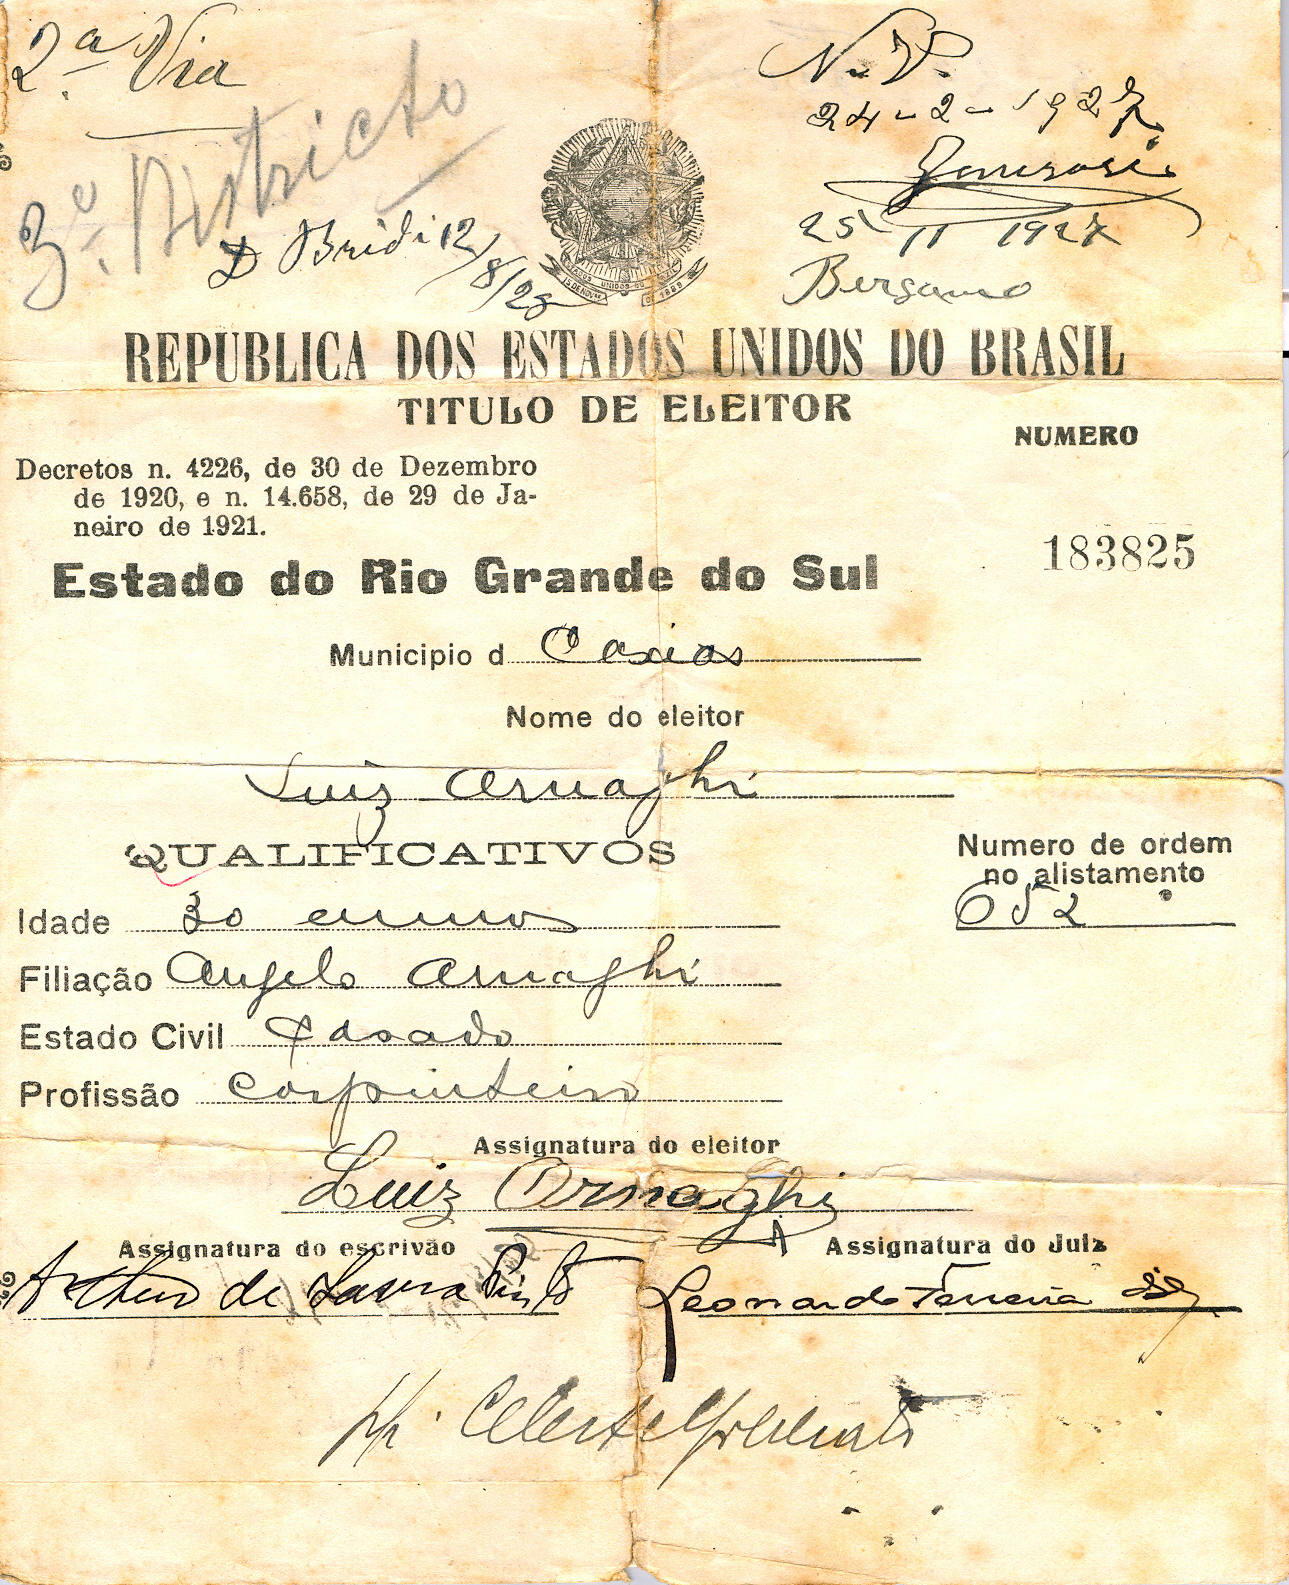 2ª Via
N. V.
24-2-1927
3º Districto
D Bridi 12/8/28
25 11 1927
Bergamo
ESTADOS UNIDOS DO BRASIL
15 DE NOV. DE 1889
REPUBLICA DOS ESTADOS UNIDOS DO BRASIL
TITULO DE ELEITOR
NUMERO
Decretos n. 4226, de 30 de Dezembro
de 1920, e n. 14.658, de 29 de Ja-
neiro de 1921.
183825
Estado do Rio Grande do Sul
Municipio d Caxias
Nome do eleitor
Luiz Arnaghi
QUALIFICATIVOS
Numero de ordem
no alistamento
652
Idade 30 annos
Filiação Angelo Arnaghi
Estado Civil Casado
Profissão Carpinteiro
Assignatura do eleitor
Luiz Ornaghi
Assignatura do escrivão
Assignatura do Juiz
Arthur de Lavra Pinto
Leonardo Ferreira